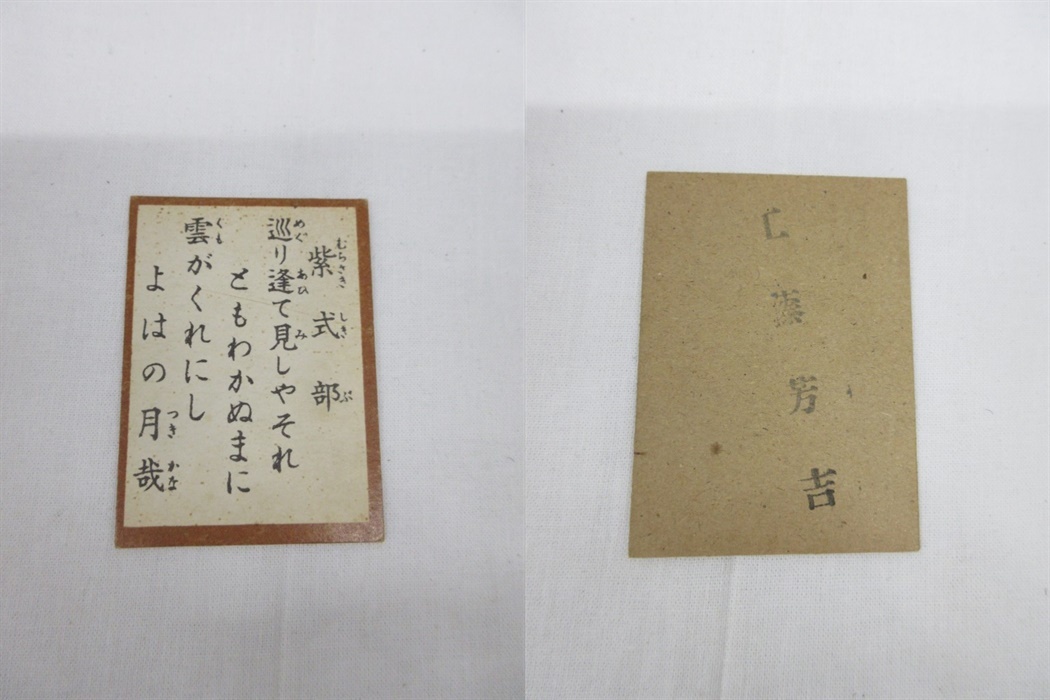 紫式部
巡り逢て見しやそれ
ともわかぬまに
雲がくれにし
よはの月哉
芳
吉